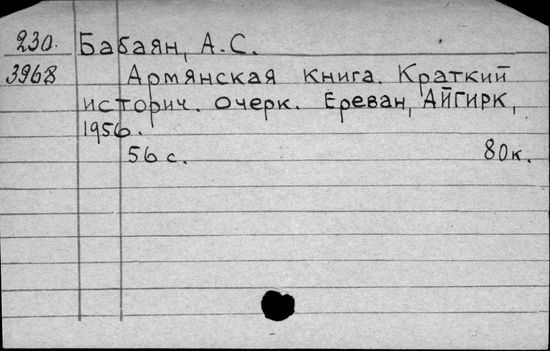 230. Бабаян, А.С.
3968 Армянская книга. Краткий
историч. очерк. Ереван, АЙГИРК,
1956.
56 с. 80к.